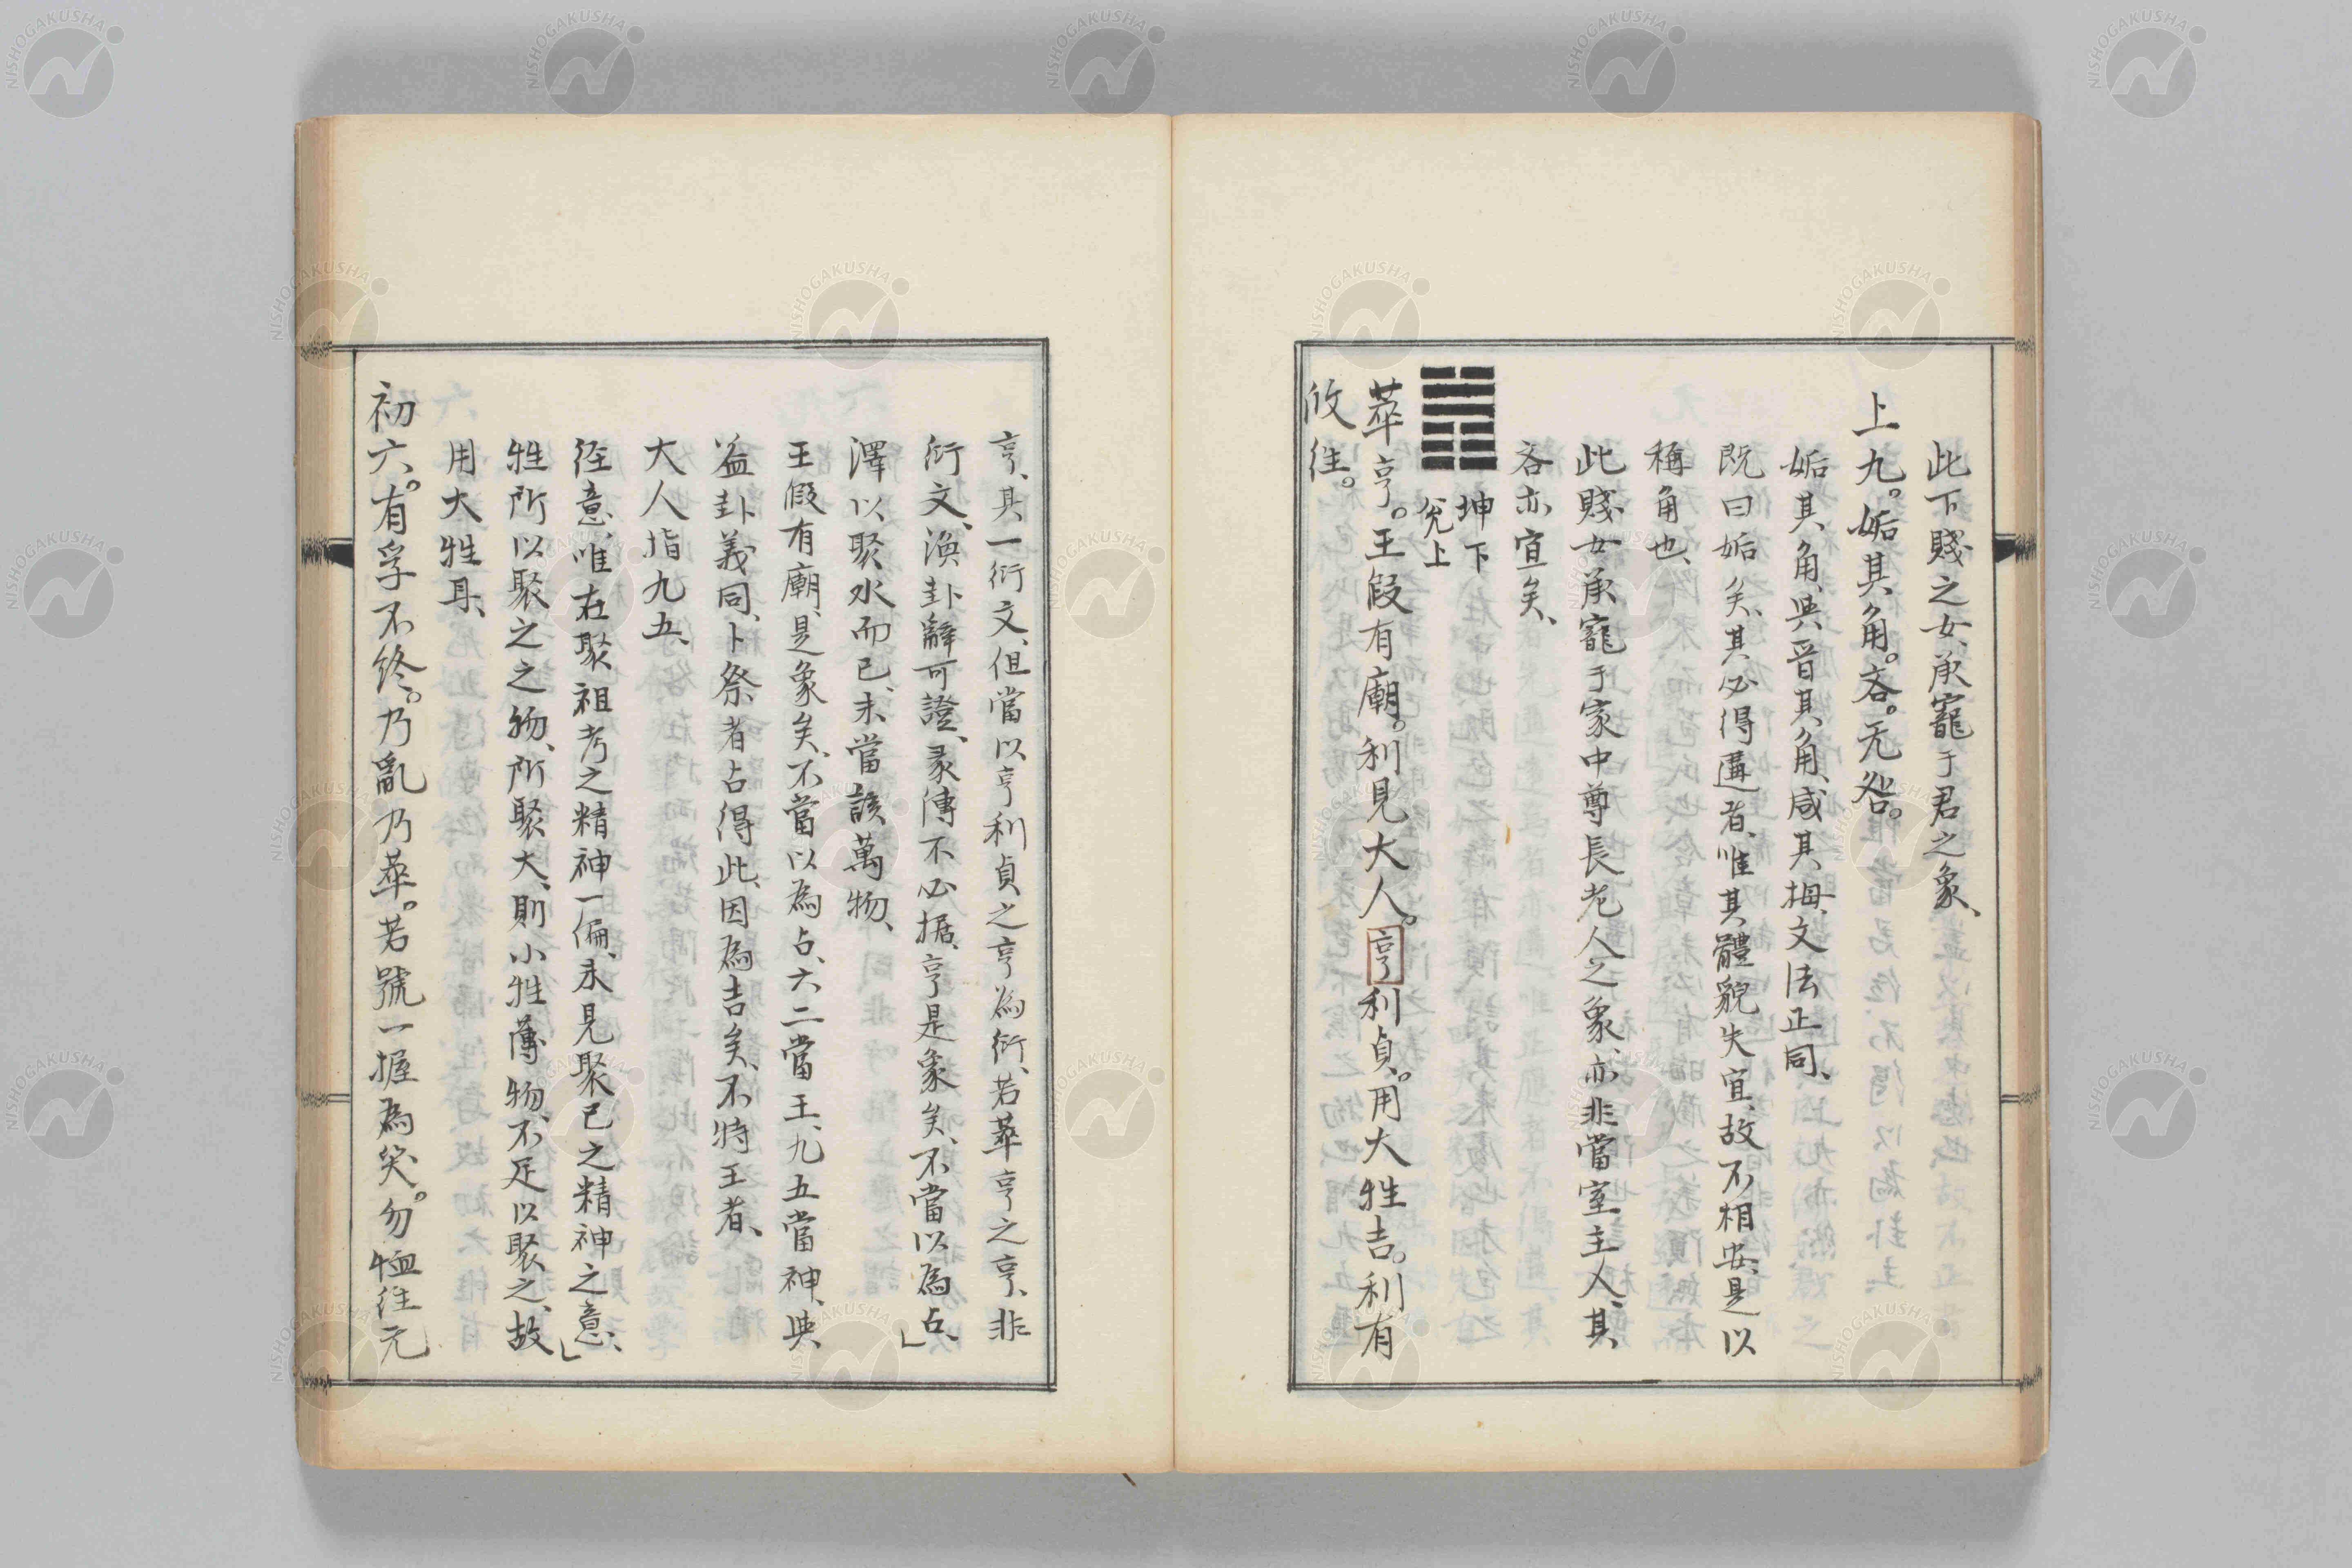 此下賤之女、承寵于君之象、
上九。姤其角。吝。无咎。
姤其角、與晉其角、咸其梅、文法正同、
既曰姤矣、其必得遘者、唯其體貌失宜、故不相安、是以
稱角也、
此賤女承寵于家中尊長老人之象、亦非當室主人、其
吝亦宜矣、
坤下
兌上
萃亨。王假有廟。利見大人。亨利貞。用大牲吉。利有
攸往。
亨、其一衍文、但當以亨利貞之亨為衍、若萃亨之亨、非
衍文、渙卦辭可證、彖傳不必據、亨是象矣、不當以為占、」
澤以聚水而已、未當該萬物、
王假有廟、是象矣、不當以為占、六二當王、九五當神、與
益卦義同、卜祭者占得此、因為吉矣、不特王者、
大人指九五、
經意、唯在聚祖考之精神一偏、未見聚己之精神之意、」
牲所以聚之之物、所聚大、則小牲薄物、不足以聚之、故
用大牲耳、
初六。有孚不終。乃亂乃萃。若號一握為笑。勿恤往无
NISHOGAKUSHA